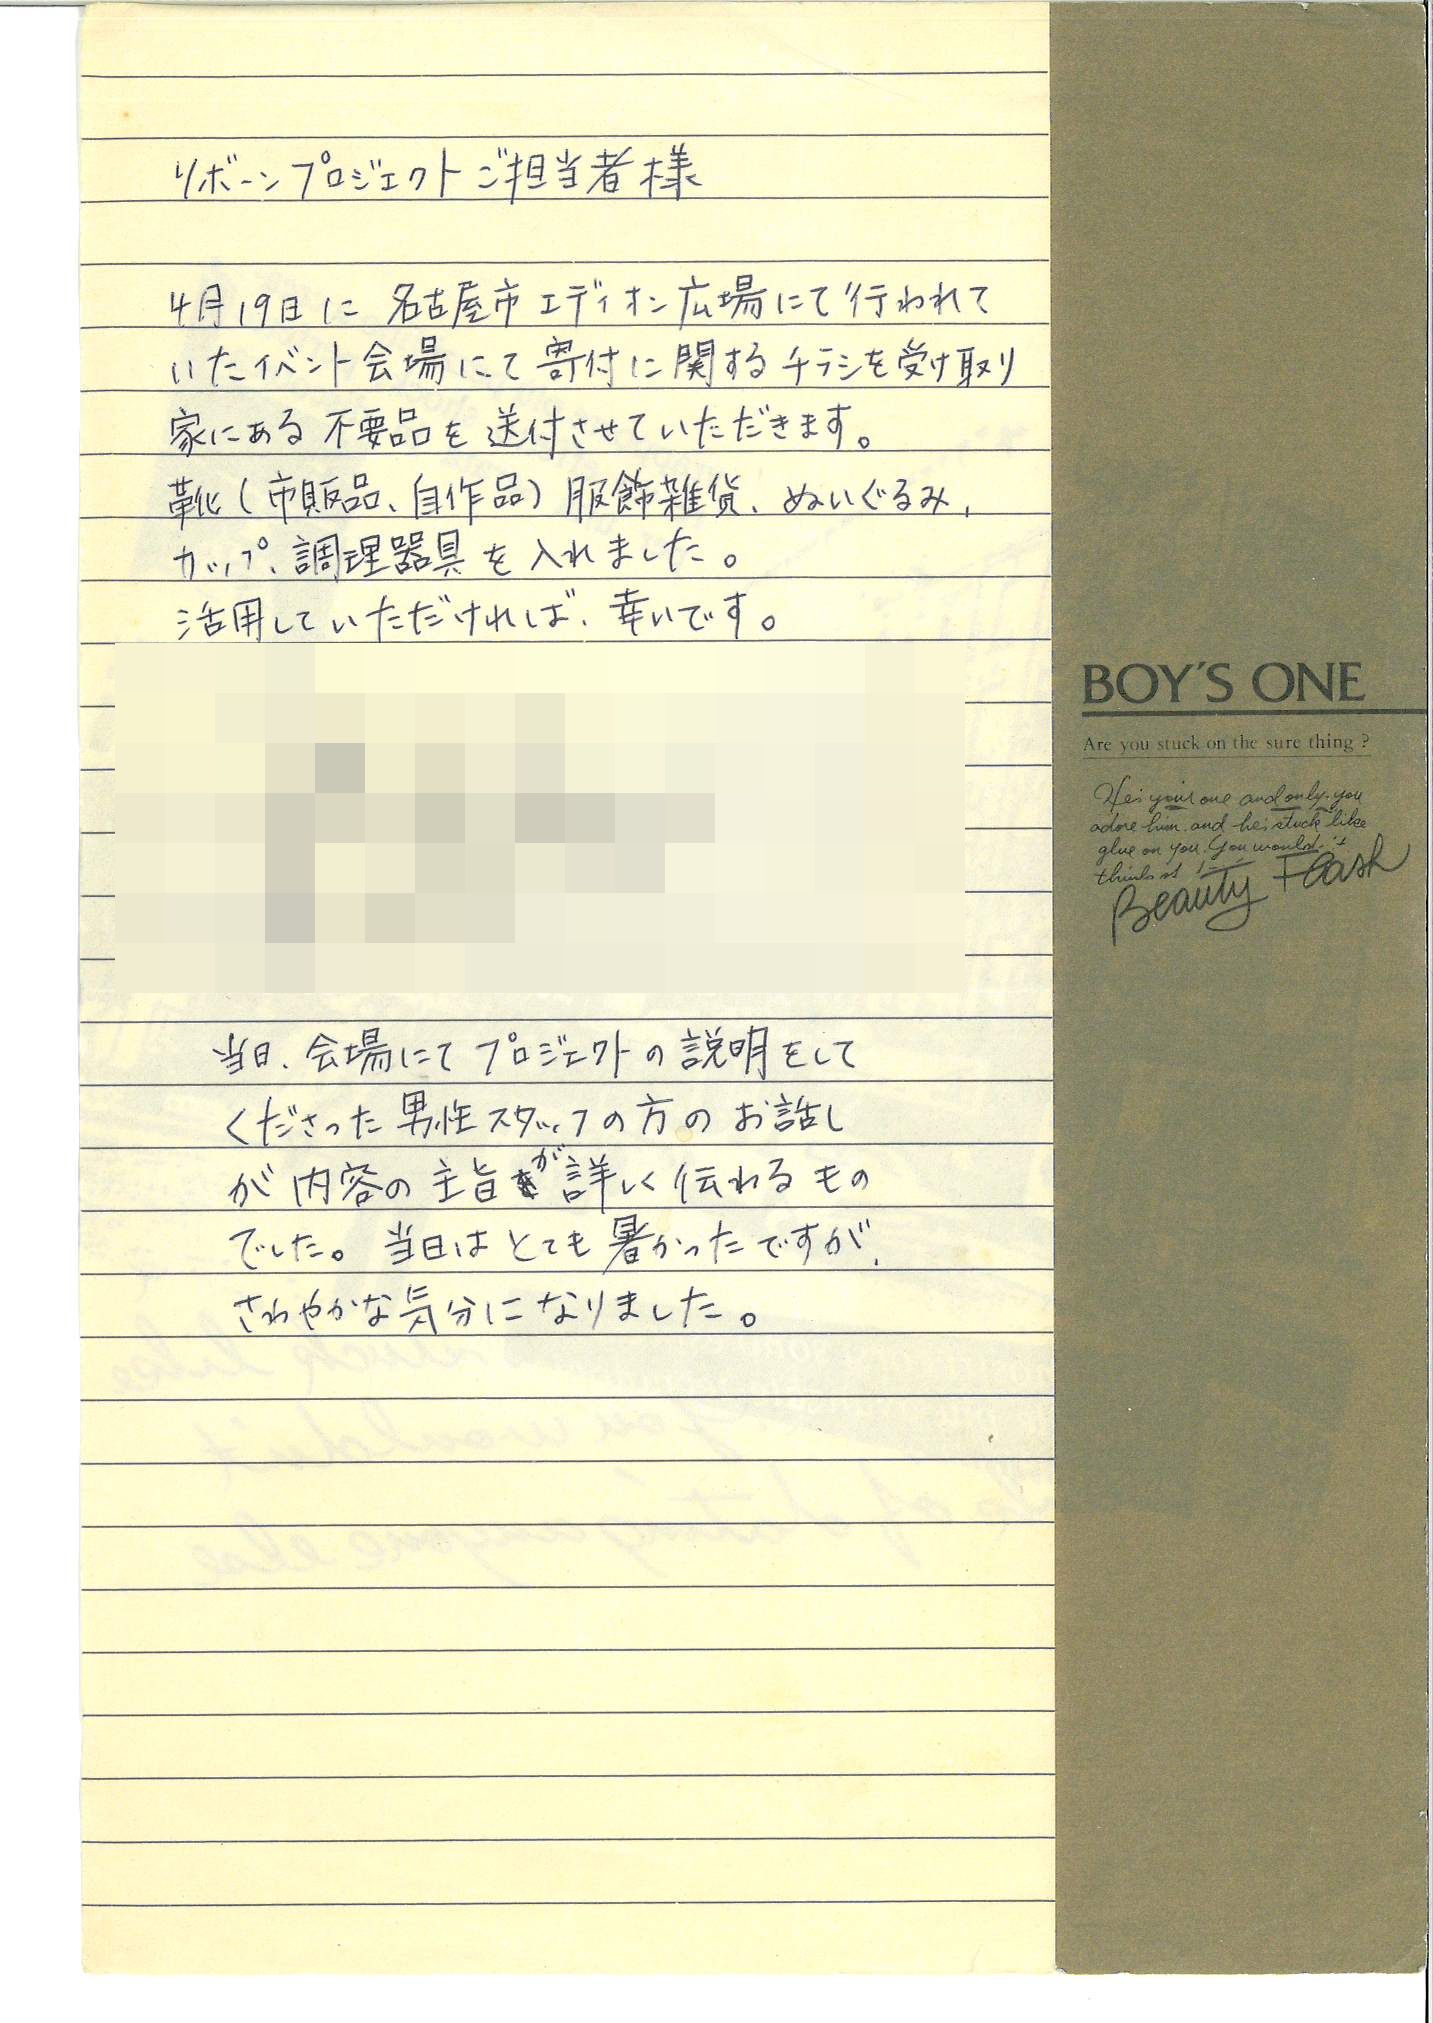 リボーンプロジェクトご担当者様
4月19日に 名古屋市エディオン広場にて行われて
いたイベント会場にて寄付に関するチラシを受け取り
家にある不要品を送付させていただきます。
靴(市販品、自作品)服飾雑貨、ぬいぐるみ、
カップ、調理器具を入れました。
活用していただければ、幸いです。
当日、会場にてプロジェクトの説明をして
くださった男性スタッフの方のお話し
が内容の主旨が詳しく伝わるもの
でした。当日はとても暑かったですが、
さわやかな気分になりました。
BOY'S ONE
Are you stuck on the sure thing?
He's your one and only. you
adore him. and he's stuck like
glue on you. You wouldn't
think of
Beauty Flash
you wouldn't
anyone else